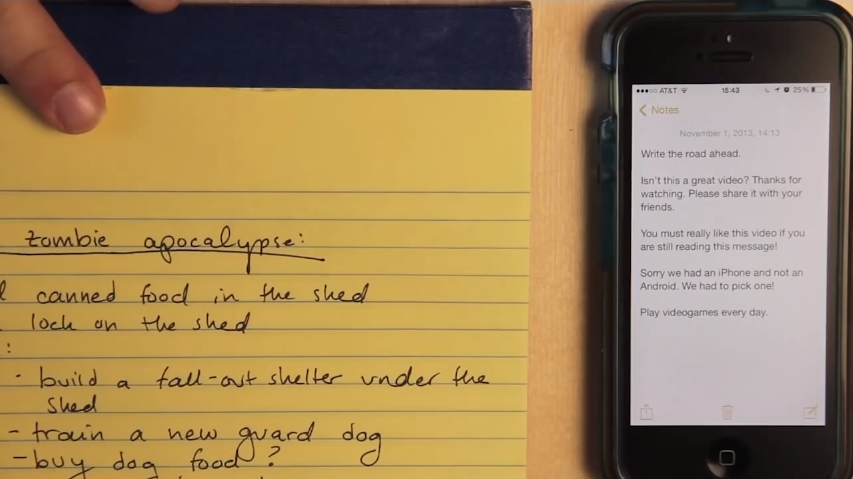 zombie apocalypse:
canned food in the shed
lock on the shed
:
- build a fall-out shelter under the
shed
- train a new guard dog
- buy dog food?
AT&T 15:43 25%
Notes
November 1, 2013, 14:13
Write the road ahead.
Isn't this a great video? Thanks for
watching. Please share it with your
friends.
You must really like this video if you
are still reading this message!
Sorry we had an iPhone and not an
Android. We had to pick one!
Play videogames every day.